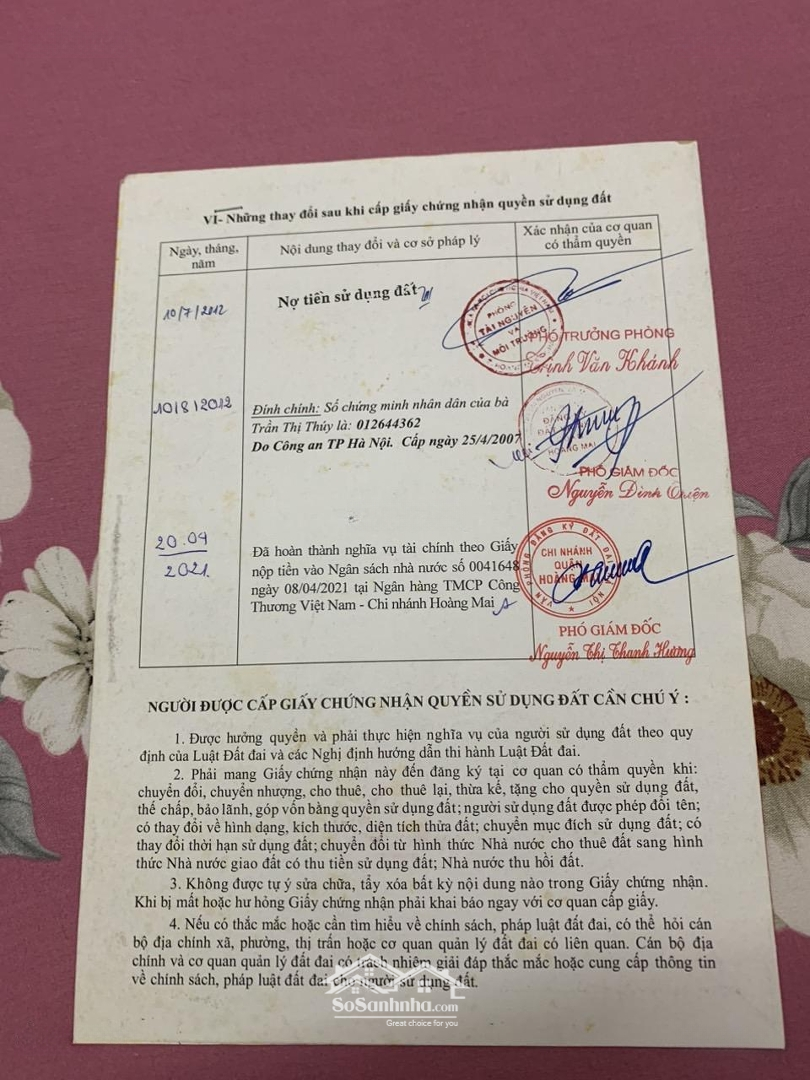 VI- Những thay đổi sau khi cấp giấy chứng nhận quyền sử dụng đất
Ngày, tháng, năm
Nội dung thay đổi và cơ sở pháp lý
Xác nhận của cơ quan có thẩm quyền
10/7/2012
Nợ tiền sử dụng đất
PHÒNG
TÀI NGUYÊN
VÀ
MÔI TRƯỜNG
PHÓ TRƯỞNG PHÒNG
Trịnh Văn Khánh
10/8/2012
Đính chính: Số chứng minh nhân dân của bà
Trần Thị Thúy là: 012644362
Do Công an TP Hà Nội. Cấp ngày 25/4/2007
HOÀNG MAI
PHÓ GIÁM ĐỐC
Nguyễn Đình Quyện
20.04
2021.
Đã hoàn thành nghĩa vụ tài chính theo Giấy
nộp tiền vào Ngân sách nhà nước số 0041648
ngày 08/04/2021 tại Ngân hàng TMCP Công
Thương Việt Nam - Chi nhánh Hoàng Mai
VĂN PHÒNG ĐĂNG KÝ ĐẤT ĐAI HÀ NỘI
CHI NHÁNH
QUẬN
HOÀNG MAI
PHÓ GIÁM ĐỐC
Nguyễn Thị Thanh Hương
NGƯỜI ĐƯỢC CẤP GIẤY CHỨNG NHẬN QUYỀN SỬ DỤNG ĐẤT CẦN CHÚ Ý :
1. Được hưởng quyền và phải thực hiện nghĩa vụ của người sử dụng đất theo quy
định của Luật Đất đai và các Nghị định hướng dẫn thi hành Luật Đất đai.
2. Phải mang Giấy chứng nhận này đến đăng ký tại cơ quan có thẩm quyền khi:
chuyển đổi, chuyển nhượng, cho thuê, cho thuê lại, thừa kế, tặng cho quyền sử dụng đất,
thế chấp, bảo lãnh, góp vốn bằng quyền sử dụng đất; người sử dụng đất được phép đổi tên;
có thay đổi về hình dạng, kích thước, diện tích thửa đất; chuyển mục đích sử dụng đất; có
thay đổi thời hạn sử dụng đất; chuyển đổi từ hình thức Nhà nước cho thuê đất sang hình
thức Nhà nước giao đất có thu tiền sử dụng đất; Nhà nước thu hồi đất.
3. Không được tự ý sửa chữa, tẩy xóa bất kỳ nội dung nào trong Giấy chứng nhận.
Khi bị mất hoặc hư hỏng Giấy chứng nhận phải khai báo ngay với cơ quan cấp giấy.
4. Nếu có thắc mắc hoặc cần tìm hiểu về chính sách, pháp luật đất đai, có thể hỏi cán
bộ địa chính xã, phường, thị trấn hoặc cơ quan quản lý đất đai có liên quan. Cán bộ địa
chính và cơ quan quản lý đất đai có trách nhiệm giải đáp thắc mắc hoặc cung cấp thông tin
về chính sách, pháp luật đất đai cho người sử dụng đất.
SoSanhnha.com
Great choice for you